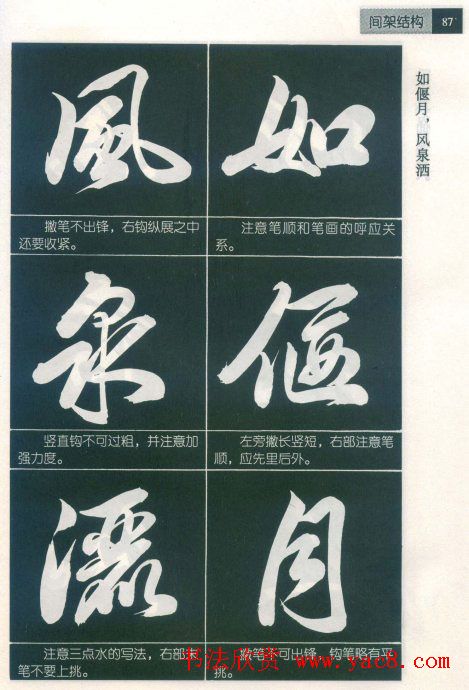 间架结构 87
如偃月，风泉洒
如
注意笔顺和笔画的呼应关
系。
偃
左旁撇长竖短，右部注意笔
顺，应先里后外。
月
撇笔不可出锋，钩笔略有平
挑。
風
撇笔不出锋，右钩纵展之中
还要收紧。
泉
竖直钩不可过粗，并注意加
强力度。
灑
注意三点水的写法，右部末
笔不要上挑。
书法欣赏 www.yac8.com